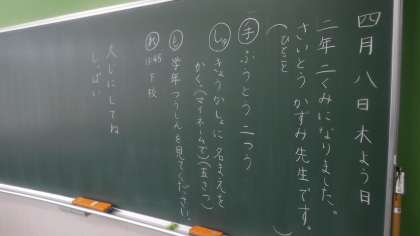 四月八日木よう日
二年二くみになりました。
さいとうかずみ先生です。
(ひとこと)
手 ふうとう二つ
しゅ きょうかしょに名まえを
かく。(マイネームで)(五さつ)
と 学年つうしんを見てください。
お 11:45 下校
大じにしてね
しっぱい